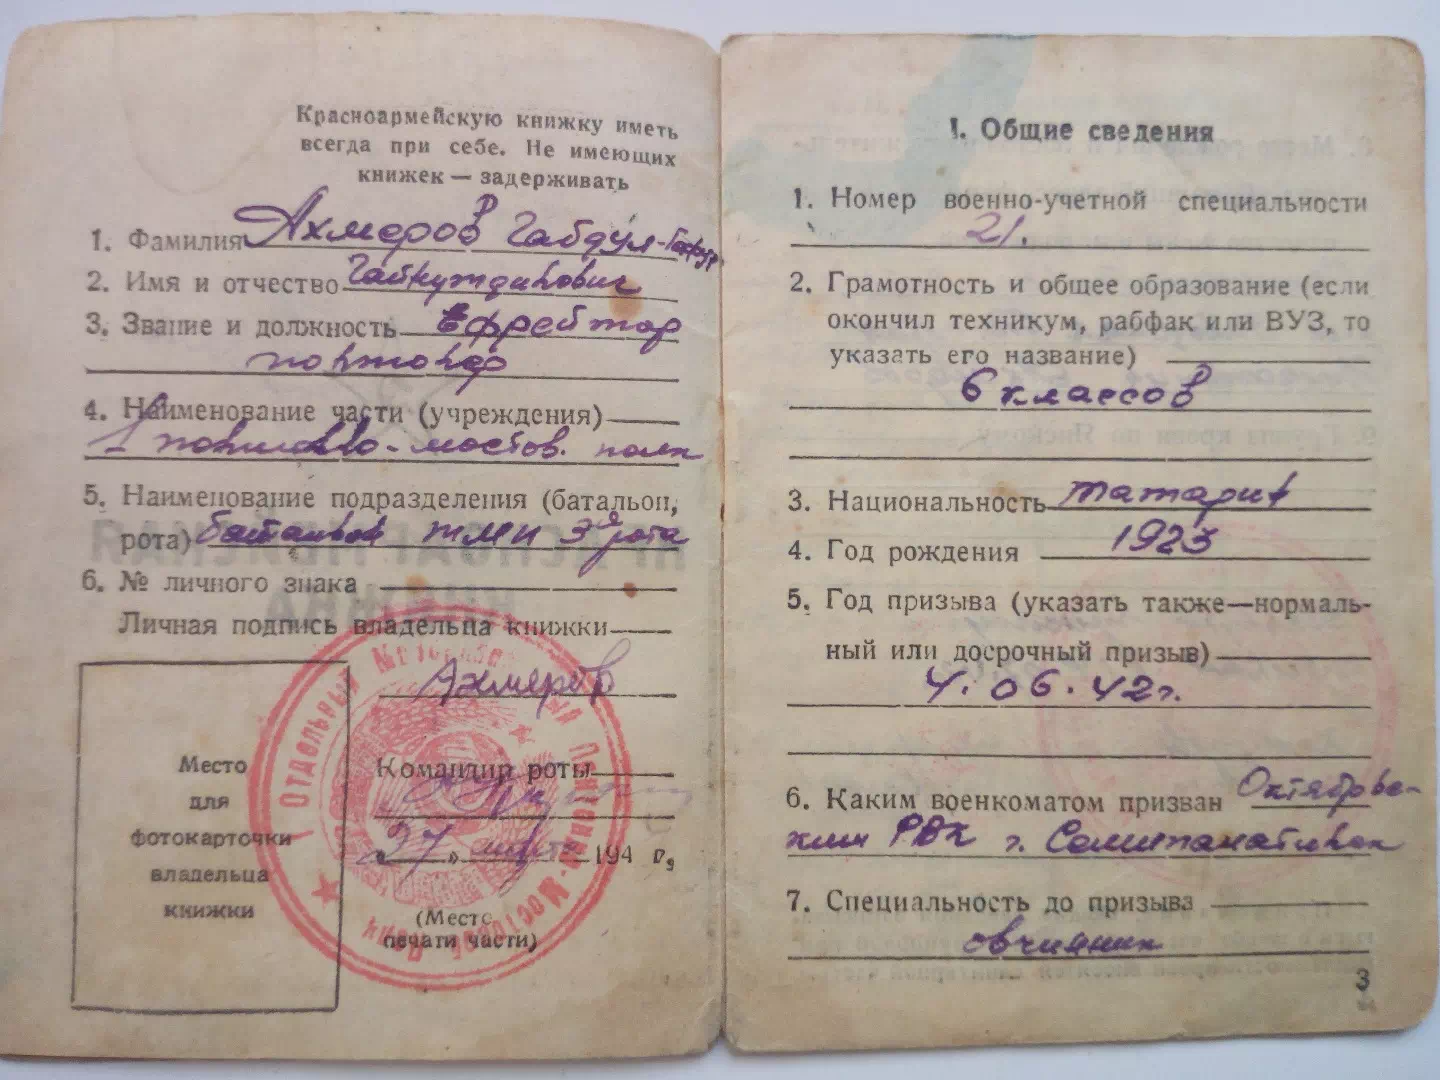 Красноармейскую книжку иметь
всегда при себе. Не имеющих
книжек — задерживать
1. Фамилия Ахмеров Габдул-Гафур
2. Имя и отчество
3. Звание и должность Ефрейтор
понтонер
4. Наименование части (учреждения)
1 понтонно-мостов. полк
5. Наименование подразделения (батальон,
рота) батальон тмп 3я рота
6. № личного знака
Личная подпись владельца книжки
Ахмеров
Место
для
фотокарточки
владельца
книжки
Командир роты
„27" марта 194 г.
(Место
печати части)
1 Отдельный Моторизованный Понтонно-Мостовой Полк
I. Общие сведения
1. Номер военно-учетной специальности
21.
2. Грамотность и общее образование (если
окончил техникум, рабфак или ВУЗ, то
указать его название)
6 классов
3. Национальность татарин
4. Год рождения 1923
5. Год призыва (указать также—нормаль-
ный или досрочный призыв)
4.06.42г.
6. Каким военкоматом призван Октябрьс-
ким РВК г. Семипалатинск
7. Специальность до призыва
овчинник
3